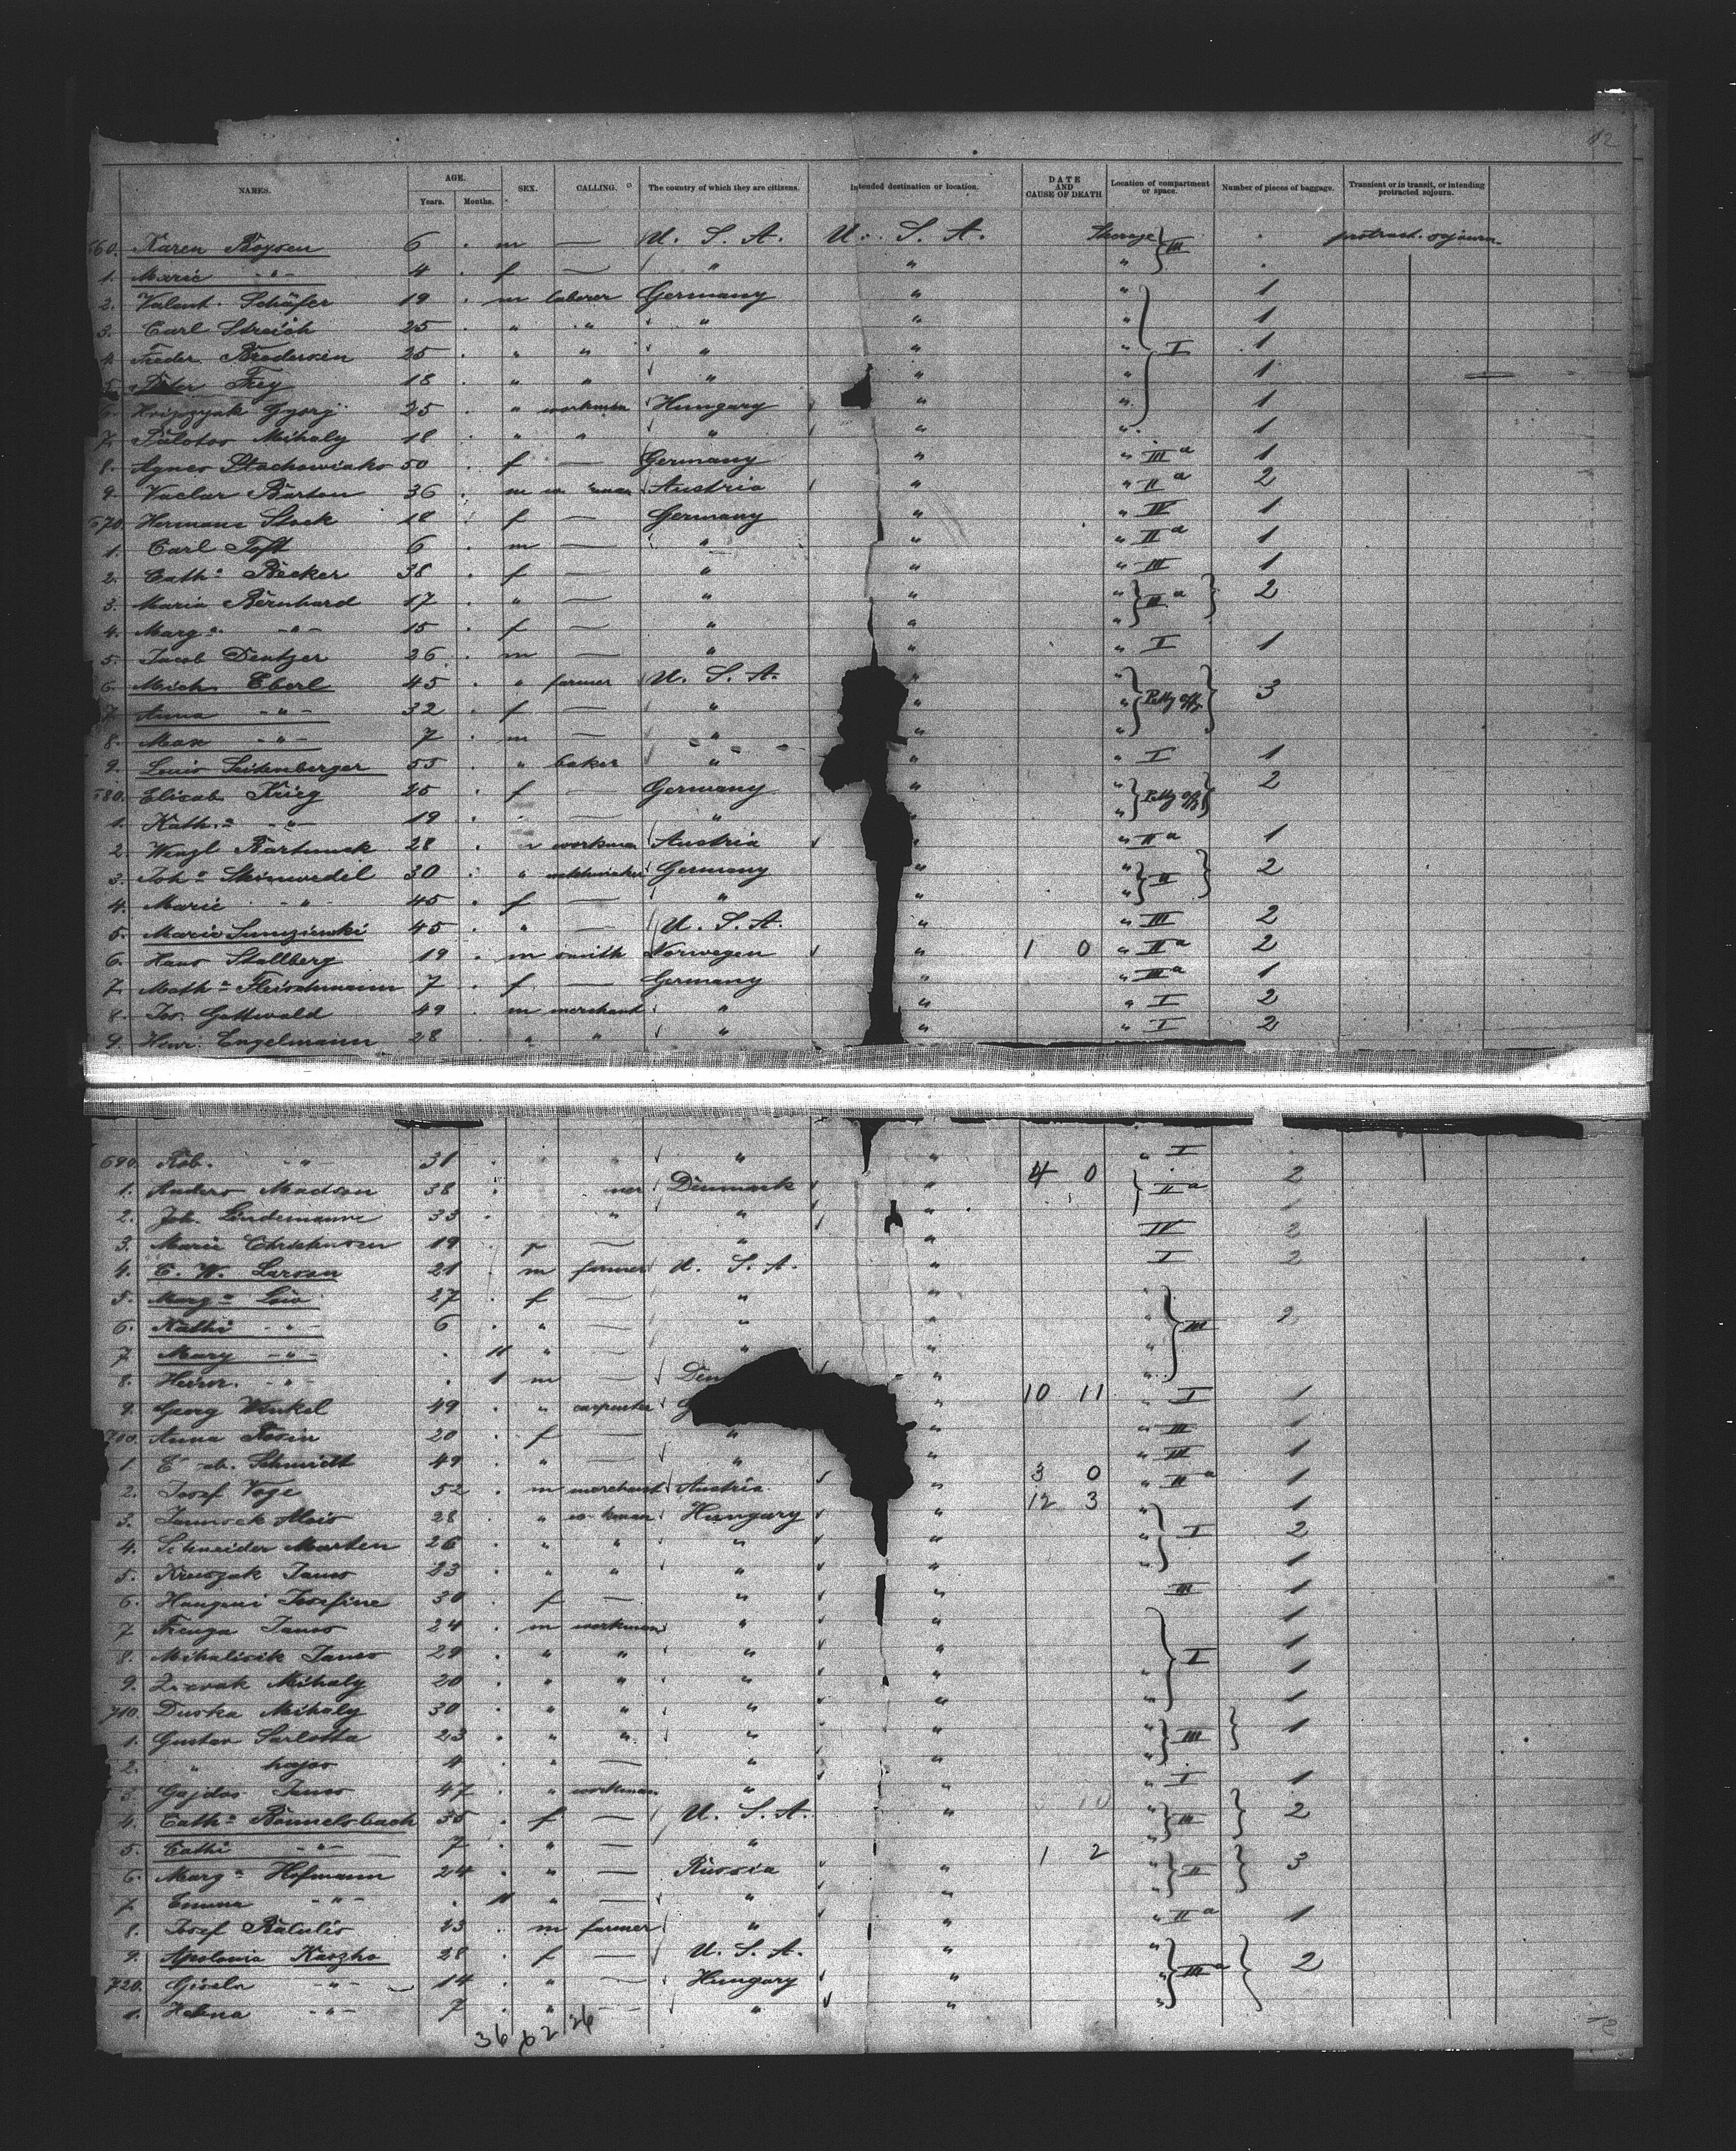 82
NAMES. AGE. Years. Months. SEX. CALLING. The country of which they are citizens. Intended destination or location. DATE AND CAUSE OF DEATH Location of compartment or space. Number of pieces of baggage. Transient or in transit, or intending protracted sojourn.
660. Karen Boysen 6 . m — U. S. A. U. S. A. Steerage III . protract. sojourn
1. Marie -"- 4 . f — " " " .
2. Valent. Schäfer 19 . m laborer Germany " " 1
3. Carl Streich 25 . " " " " " 1
4. Feeder. Brodersen 25 . " " " " " I 1
5. Peter Frey 18 . " " " " " 1
6. Gyorj 25 . " workman Hungary " " 1
7. Palotos Mihaly 18 . " " " " " 1
8. Agnes Stachowiak 50 . f — Germany " " III a 1
9. Vaclav Barton 36 . m Austria " " II a 2
670. Hermane Stock 18 . f — Germany " " IV 1
1. Carl Toft 6 . m — " " " II a 1
2. Cath.a Becker 38 . f — " " " III 1
3. Maria Bernhard 17 . " — " " " III a 2
4. Marg.a -"- 15 . f — " " "
5. Jacob Dentzer 26 . m — " " " I 1
6. Mich. Eberl 45 . " farmer U. S. A. " " Petty off. 3
7. Anna -"- 32 . f — " " "
8. Max -"- 7 . m — " " "
9. Louis Seitenberger 55 . " baker " " " I 1
680. Elisab. Krieg 25 . f — Germany " " Petty off. 2
1. Kath.a -"- 19 . — " "
2. Wenzl Bartunek 28 . workman Austria " " II a 1
3. Joh.a 30 . " Germany " " II 2
4. Marie " 45 . f — " " "
5. Marie 45 . " — U. S. A. " " III 2
6. Hans Stallberg 19 . m smith Norwegen " 1 0 " II a 2
7. Math.a Fleischmann 7 . f — Germany " " III a 1
8. Jos. Gottwald 49 . m merchant " " " I 2
9. Henri. Engelmann 28 . " " " " I 2
690. Rob. -"- 31 . " " " I
1. Anders Madsen 38 . Denmark " 4 0 II a 2
2. Joh. Lindemann 33 . " " " 1
3. Marie Christensen 19 . f — " " IV 2
4. C. W. Larson 21 . m farmer U. S. A. " I 2
5. Marg.a 27 . f — " " " 2
6. Kathi -"- 6 . " — " " " III
7. Mary -"- . 11 " — " " "
8. Heinr. -"- . 1 m — Den "
9. Georg Winkel 49 . " carpenter G " 10 11 " I 1
700. Anna 20 . f — " " " III 1
1. Schmidt 49 . " — " " " III 1
2. Josef Voge 52 . m merchant Austria " 3 0 " II a 1
3. Alois 28 . " Hungary " 12 3 " 1
4. Schneider Marten 26 . " " " " " I 2
5. Janos 23 . " " " " " 1
6. Josefine 30 . f — " " III 1
7. Janos 24 . m workman " " 1
8. Mihalicik Janos 29 . " " " " I 1
9. Mihaly 20 . " " " " " 1
710. Duska Mihaly 30 . " " " " " 1
1. Gustav Sarlotta 23 . " " " " " III 1
2. " hajos 4 . " — " " "
3. Gajdos Janos 47 . " workman " " " I 1
4. Cath.a Bommelsbach 35 . f — U. S. A. " " III 2
5. Cathi -"- 7 . " — " "
6. Marg.a Hofmann 24 . " — Russia " 1 2 " II 3
7. Emma -"- . 11 " — " " "
8. Josef 23 . m farmer " " " II a 1
9. Apolonia Kaszko 28 . f — U. S. A. " " 2
720. Gisela -"- 14 . " — Hungary " " III a
1. Helena -"- 7 . " — " " "
36 62 26